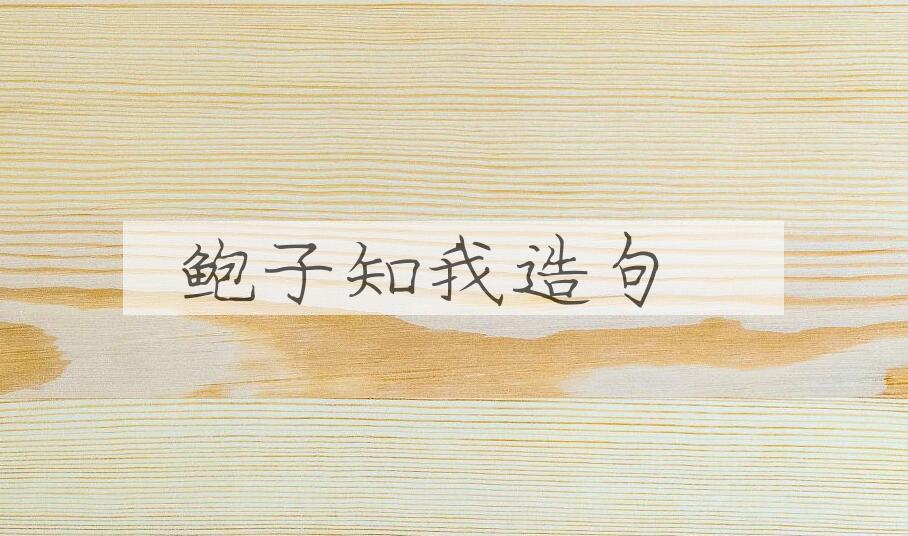 鲍子知我造句